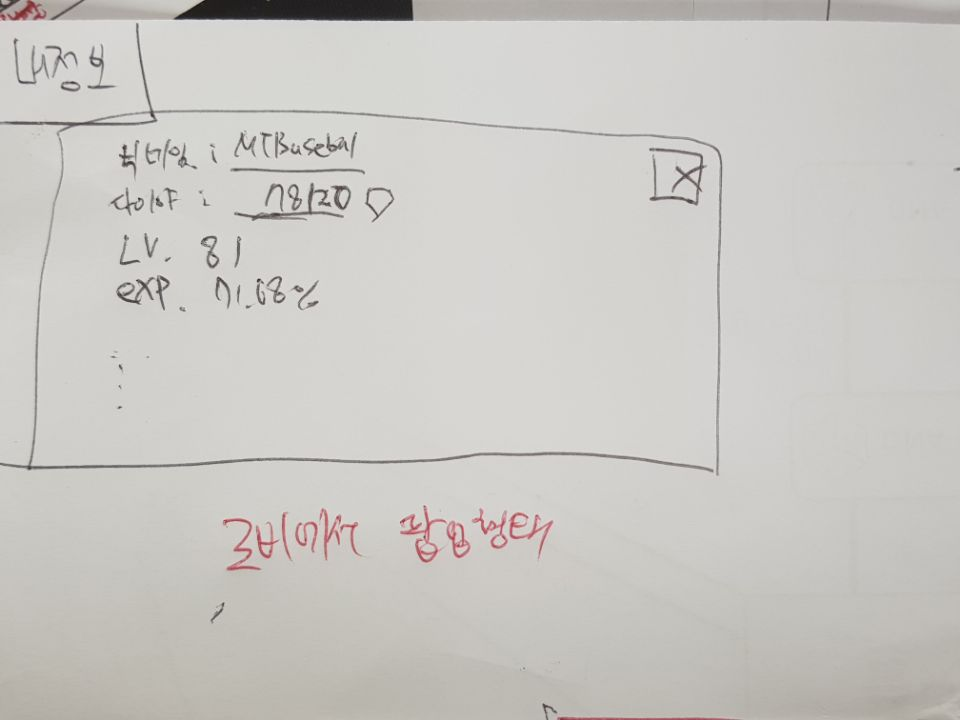 내정보
닉네임 : MTBasebal
다이아 : 78120
X
LV. 81
exp. 71.68%
로비에서 팝업형태